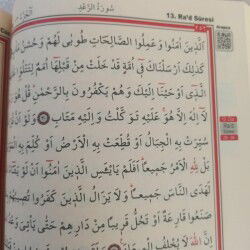 سُورَةُ الرَّعْدِ
13. Ra'd Sûresi
اَلَّذ۪ينَ اٰمَنُوا وَعَمِلُوا الصَّالِحَاتِ طُوبٰى لَهُمْ وَحُسْنُ
كَذٰلِكَ اَرْسَلْنَاكَ ف۪ٓي اُمَّةٍ قَدْ خَلَتْ مِنْ قَبْلِهَٓا اُمَمٌ لِتَتْلُوَ۬ا
الَّذ۪ٓي اَوْحَيْنَٓا اِلَيْكَ وَهُمْ يَكْفُرُونَ بِالرَّحْمٰنِۜ قُلْ هُوَ
لَٓا اِلٰهَ اِلَّا هُوَۚ عَلَيْهِ تَوَكَّلْتُ وَاِلَيْهِ مَتَابِ
سُيِّرَتْ بِهِ الْجِبَالُ اَوْ قُطِّعَتْ بِهِ الْاَرْضُ
بَلْ لِلّٰهِ الْاَمْرُ جَم۪يعًاۜ اَفَلَمْ يَايْـَٔسِ الَّذ۪ينَ اٰمَنُٓوا اَنْ لَوْ
لَهَدَى النَّاسَ جَم۪يعًاۜ وَلَا يَزَالُ الَّذ۪ينَ كَفَرُوا تُص۪يبُهُمْ
صَنَعُوا قَارِعَةٌ اَوْ تَحُلُّ قَر۪يبًا مِنْ دَارِهِمْ حَتّٰى يَأْتِيَ
اللّٰهَ لَا يُخْلِفُ